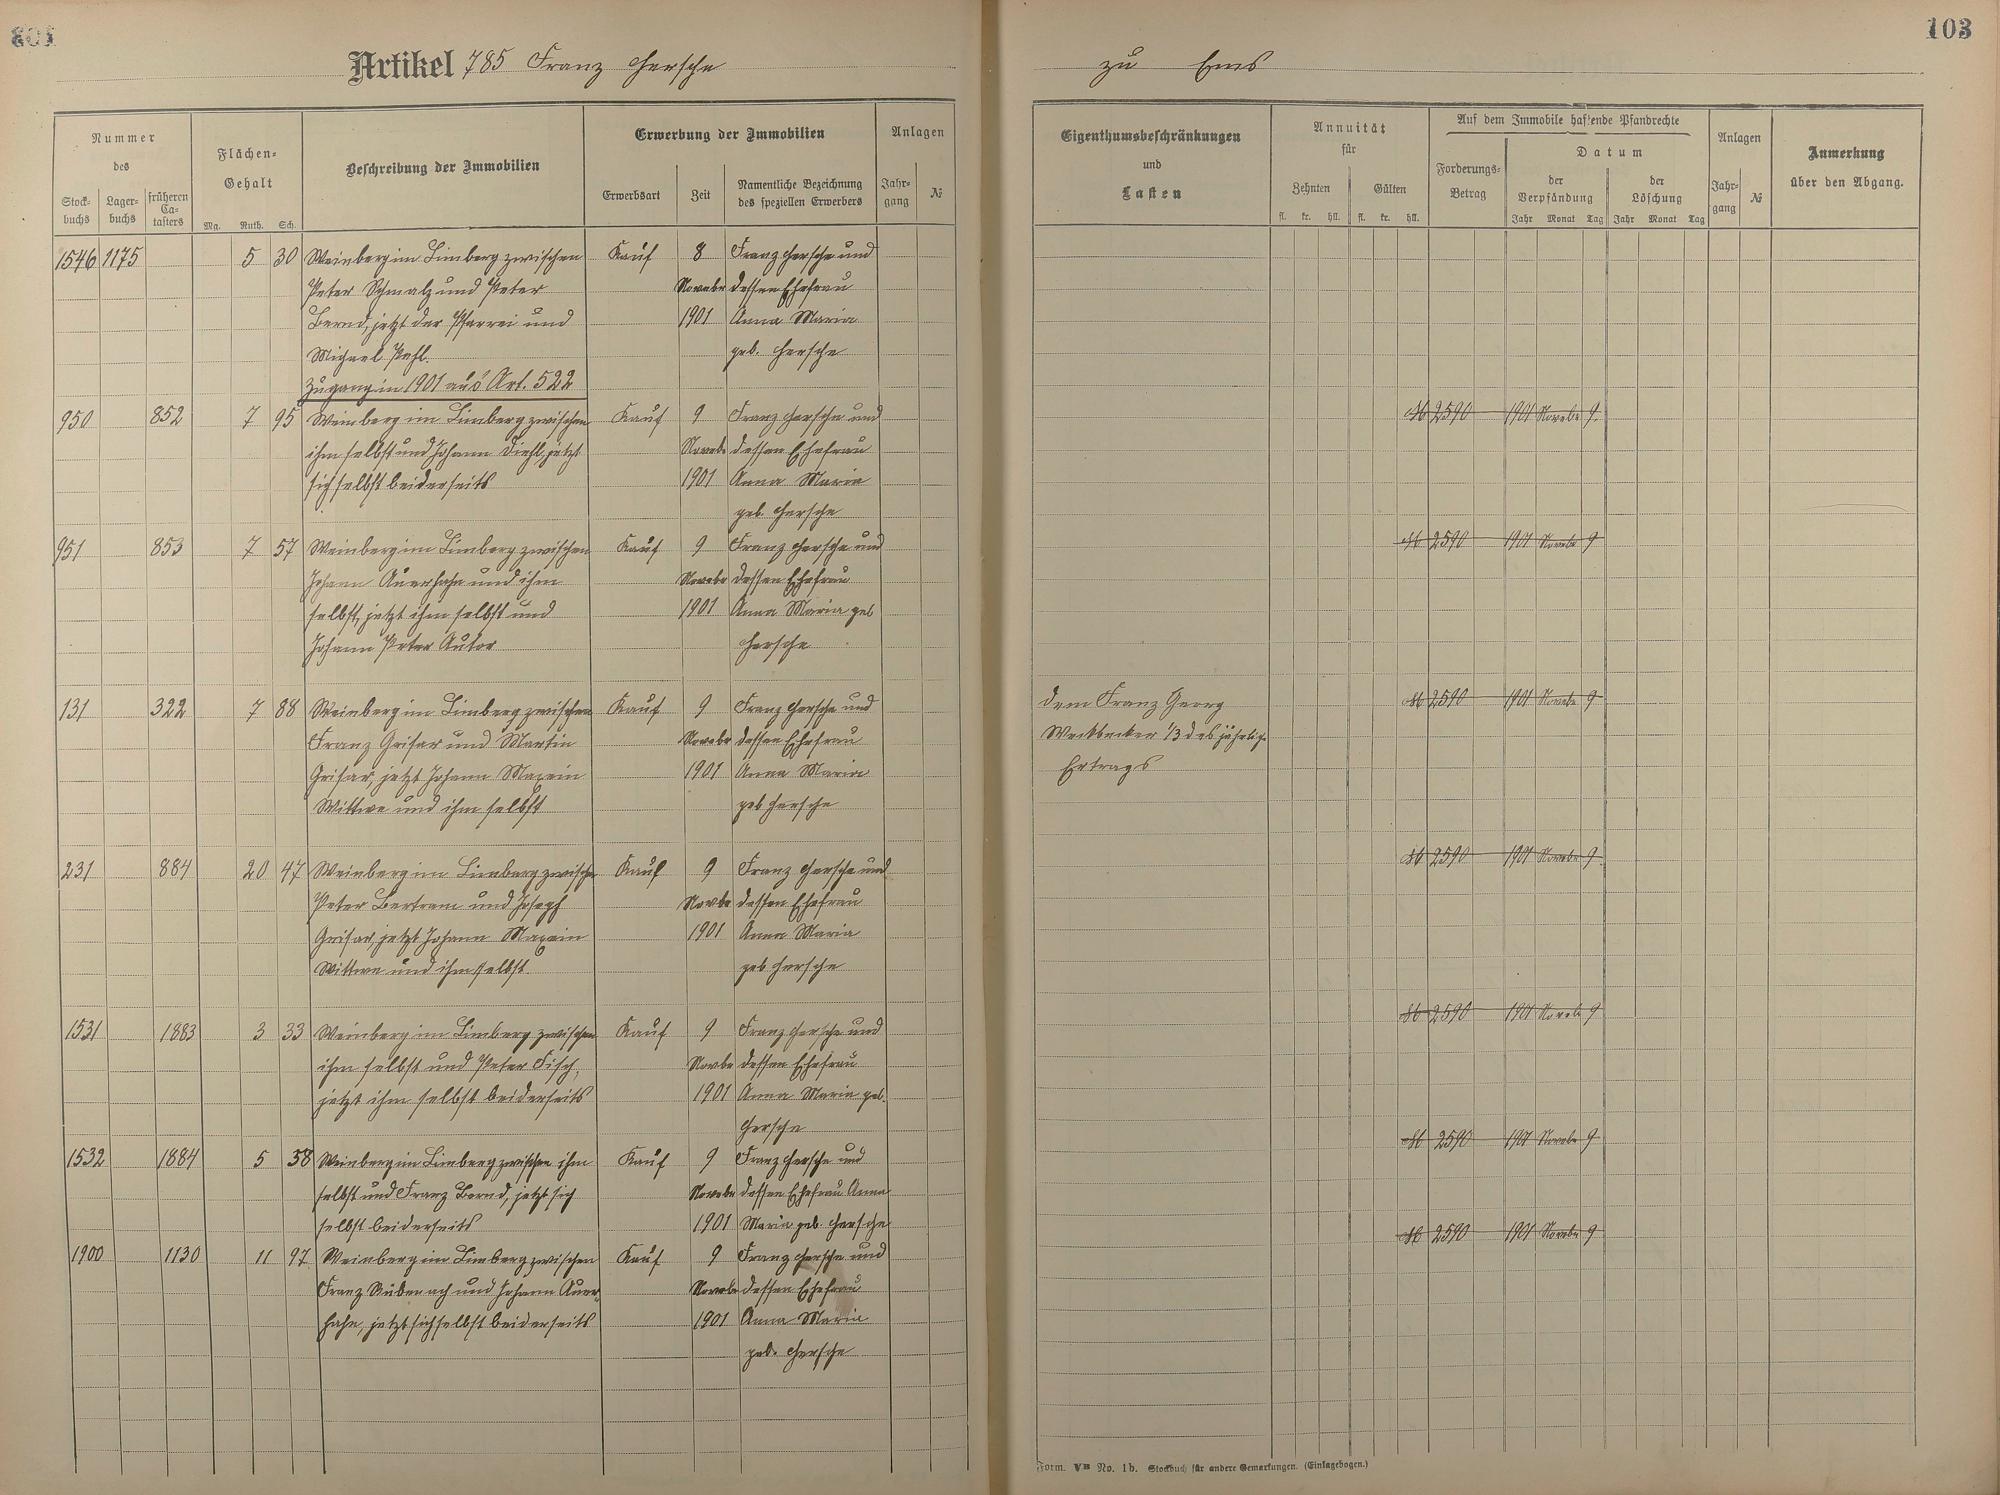 103
Artikel 785 Franz Hersche
Nummer
des
Stock-
buchs
Lager-
buchs
früheren
Ca-
tasters
Flächen-
Gehalt
Mg. Ruth. Sch.
Beschreibung der Immobilien
Erwerbung der Immobilien
Erwerbsart
Zeit
Namentliche Bezeichnung
des speziellen Erwerbers
Anlagen
Jahr-
gang
№
1546 1175 5 30 Weinberg im Limberg zwischen Kauf 8 Franz Hersche und
Peter Schmalz und Peter Novebr dessen Ehefrau
Bernd, jetzt der Pfarrei und 1901 Anna Maria
Michael Pehl. geb. Hersche
Zugang in 1901 aus Art. 522
950 852 7 95 Weinberg im Limberg zwischen Kauf 9 Franz Hersche und
ihm selbst und Johann Diehl, jetzt Novebr dessen Ehefrau
sich selbst beiderseits 1901 Anna Maria
geb. Hersche
951 853 7 57 Weinberg im Limberg zwischen Kauf 9 Franz Hersche und
Johann Auerhahn und ihm Novebr dessen Ehefrau
selbst, jetzt ihm selbst und 1901 Anna Maria geb
Johann Peter Autor Hersche
131 322 7 88 Weinberg im Limberg zwischen Kauf 9 Franz Hersche und
Franz Grisar und Martin Novebr dessen Ehefrau
Grisar, jetzt Johann Maxein 1901 Anna Maria
Wittwe und ihm selbst geb Hersche
231 884 20 47 Weinberg im Limberg zwischen Kauf 9 Franz Hersche und
Peter Bertram und Joseph Novbr dessen Ehefrau
Grisar, jetzt Johann Maxein 1901 Anna Maria
Wittwe und ihm selbst. geb Hersche
1531 1883 3 33 Weinberg im Limberg zwischen Kauf 9 Franz Hersche und
ihm selbst und Peter Fisch, Novbr dessen Ehefrau
jetzt ihm selbst beiderseits 1901 Anna Maria geb.
Hersche
1532 1884 5 38 Weinberg im Limberg zwischen ihm Kauf 9 Franz Hersche und
selbst und Franz Bernd, jetzt sich Novebr dessen Ehefrau Anna
selbst beiderseits 1901 Maria geb. Hersche
1900 1130 11 97 Weinberg im Limberg zwischen Kauf 9 Franz Hersche und
Franz Rübenach und Johann Auer- Novebr dessen Ehefrau
hahn, jetzt sich selbst beiderseits 1901 Anna Maria
geb. Hersche
103
zu Ems
Eigenthumsbeschränkungen
und
Lasten
Annuität
für
Zehnten
fl. kr. hll.
Gülten
fl. kr. hll.
Auf dem Immobile haftende Pfandrechte
Forderungs-
Betrag
Datum
der
Verpfändung
Jahr Monat Tag
der
Löschung
Jahr Monat Tag
Anlagen
Jahr-
gang
№
Anmerkung
über den Abgang.
M 2590 1901 Novebr 9.
M 2590 1901 Novebr 9
dem Franz Georg M 2590 1901 Novebr 9
Weckbecker 1/3 des jährlich
Ertrags
M 2590 1901 Novebr 9.
M 2590 1901 Novebr 9
M 2590 1901 Novebr 9
M 2590 1901 Novebr 9
Form. VB No. 1b. Stockbuch für andere Gemarkungen. (Einlagebogen.)